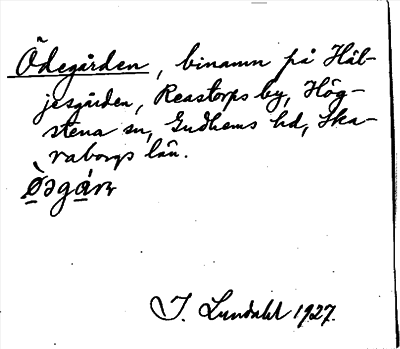 Ödegården, binamn på Häl-
jesgården, Reastorps by, Hög-
stena sn, Gudhems hd, Ska-
raborgs län.
I. Lundahl 1927.